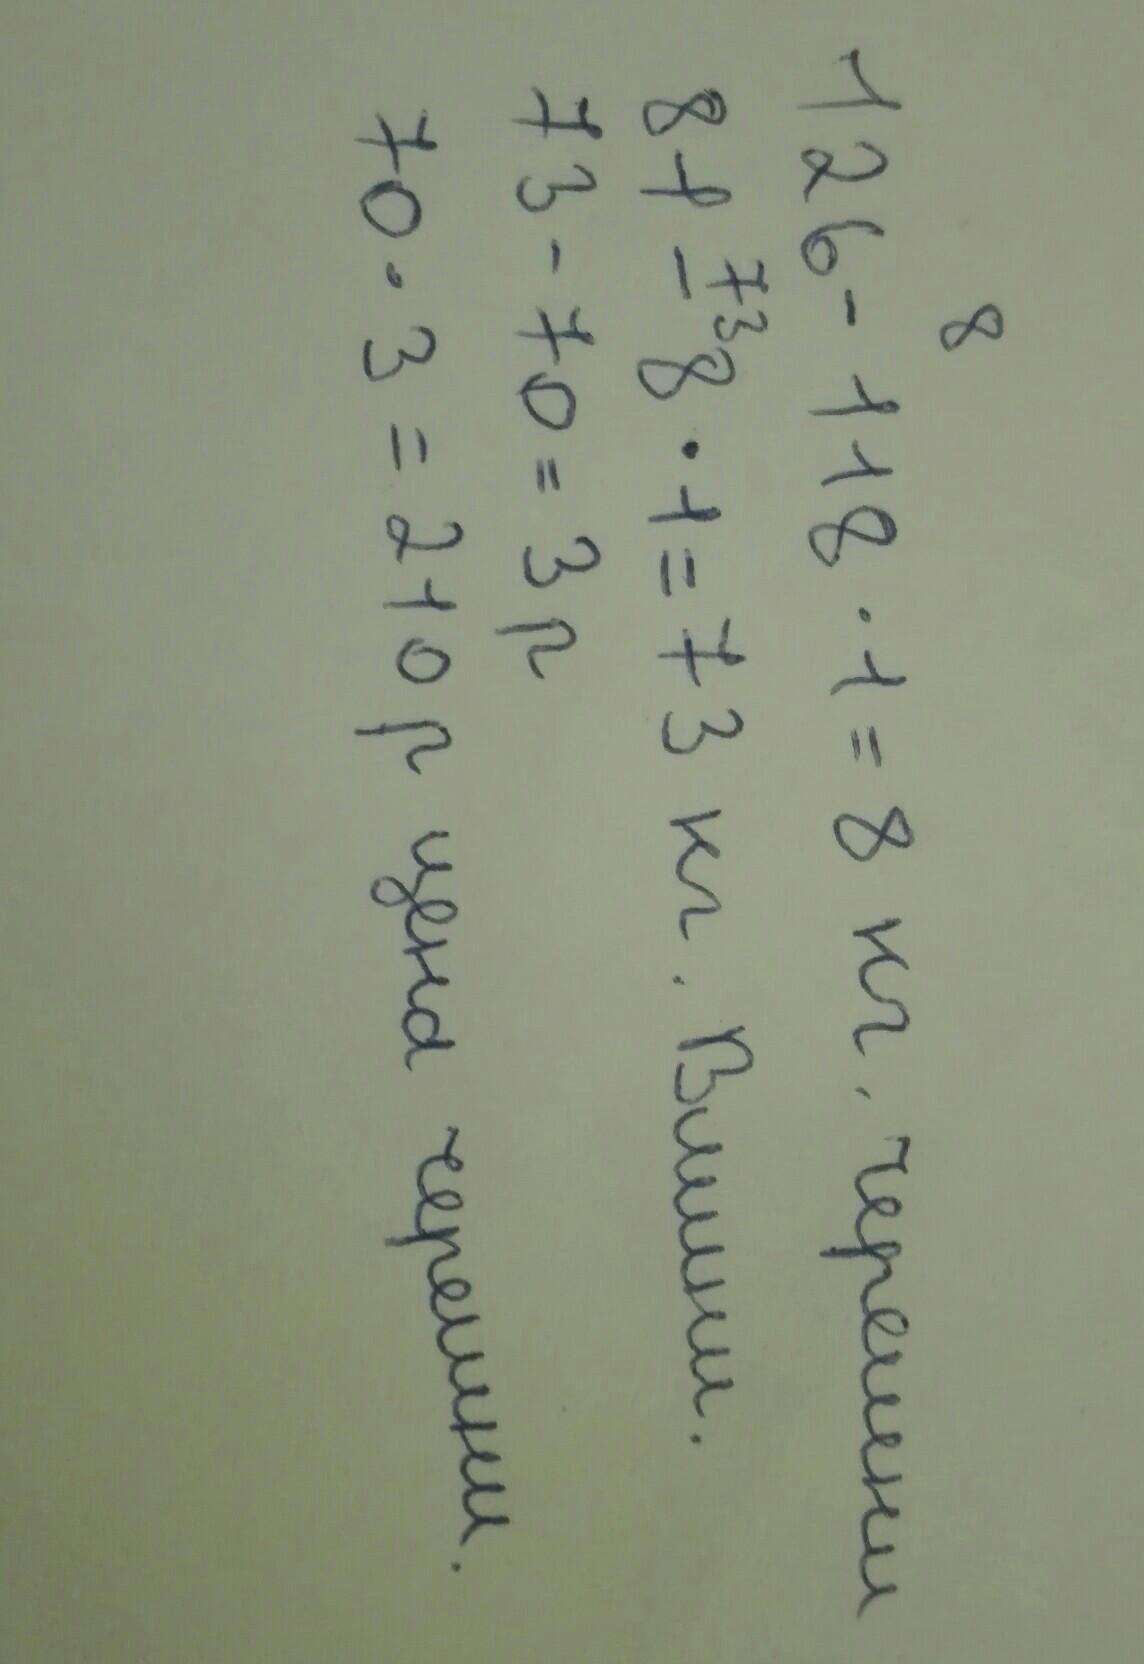 8
126-118·1=8 кг. черешни
73
81-8·1=73 кг. Вишни.
73-70=3р
70·3=210р цена черешни.